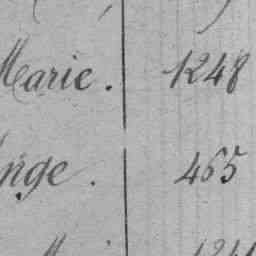 Marie. 1248
nge. 465